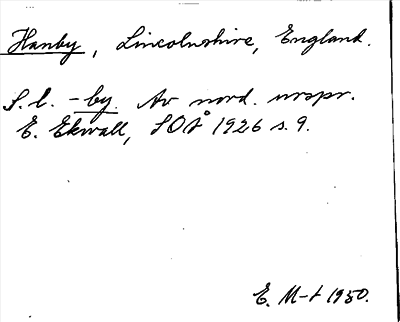 Hanby, Lincolnshire, England.
S.l. -by. Av nord. urspr.
E. Ekwall, SOÅ 1926 s. 9.
E. M-t 1950.